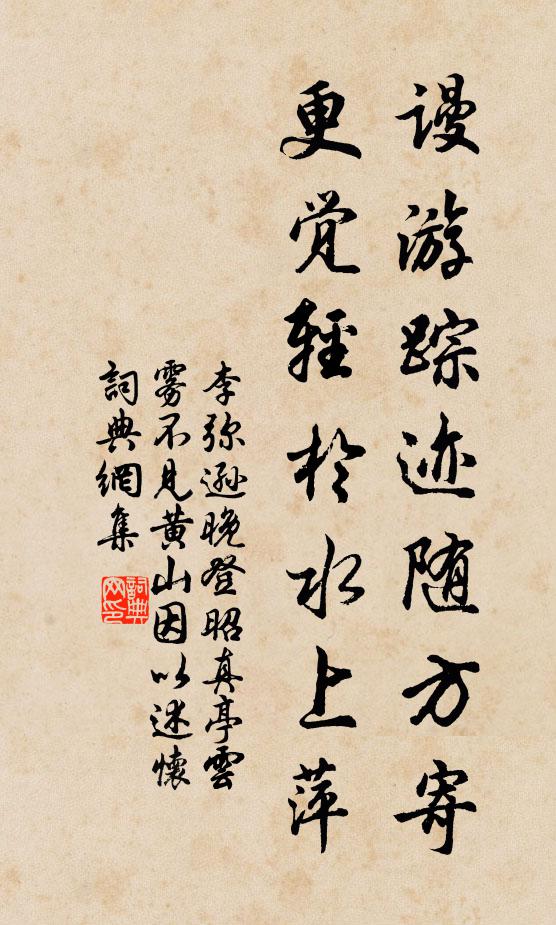 谩游踪迹随方寄
更觉轻於水上萍
李弥逊晚登昭真亭雲
雾不见黄山因以述懷
詞典網集
詞典